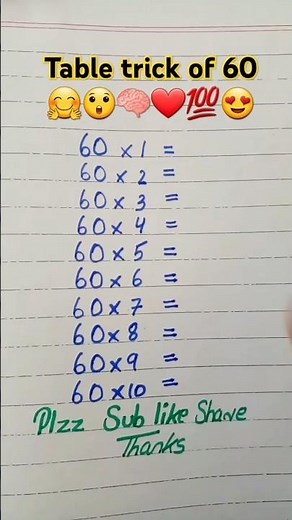 Table trick of 60
🤗😲🧠❤️💯😍
60 x 1 =
60 x 2 =
60 x 3 =
60 x 4 =
60 x 5 =
60 x 6 =
60 x 7 =
60 x 8 =
60 x 9 =
60 x 10 =
Plzz Sub like Share
Thanks